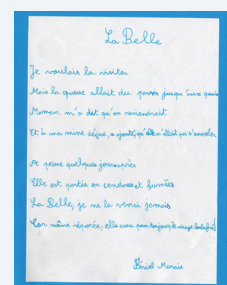 La Belle
Je voulais la visiter
Mais la queue allait du parvis jusqu'aux quais
Maman m'a dit qu'on reviendrait
Et à ma mine déçue, a ajouté, qu'elle n'allait pas s'envoler.
A peine quelques jours après
Elle est partie en cendres et fumées
La Belle, je ne la verrai jamais
Car même réparée, elle aura pour toujours le visage
Marais